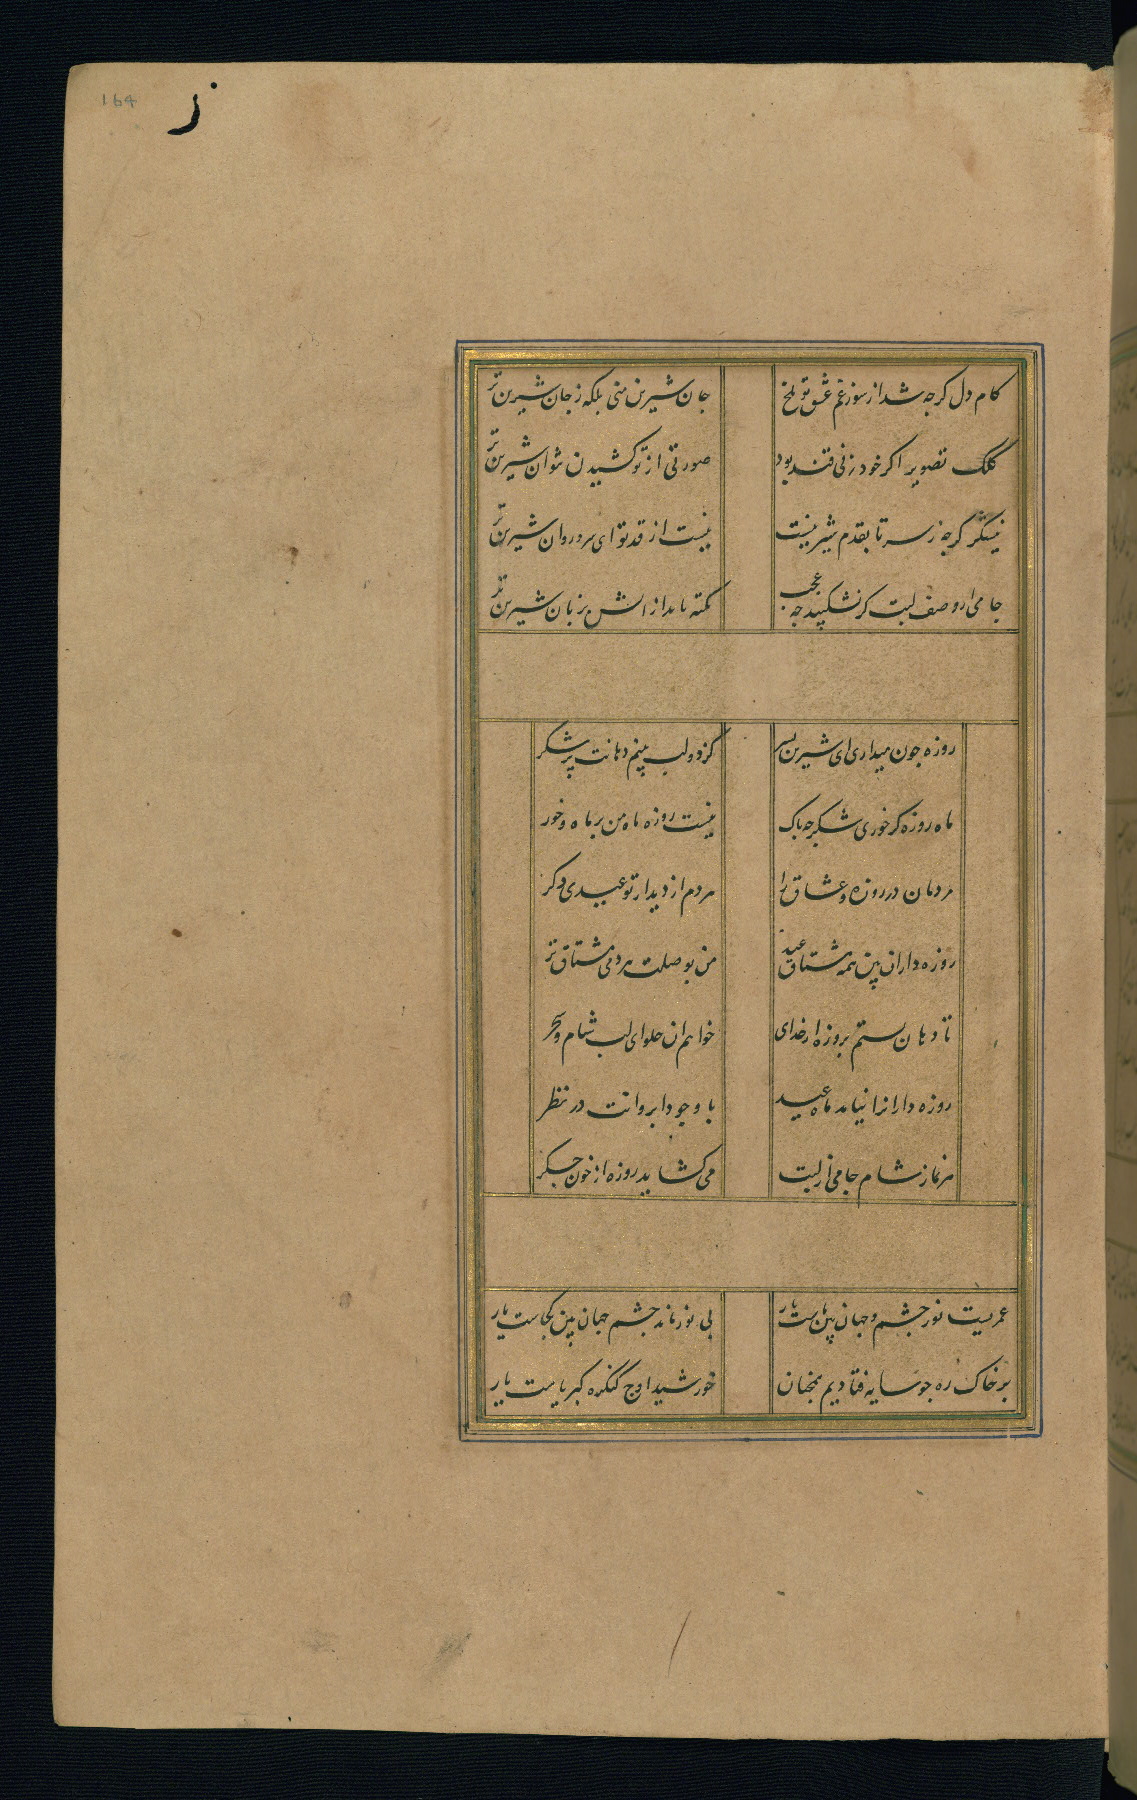 164
ز
کام دل کرجه شد از سوز غم عشق تو تلخ
جان شیرین منی بلکه ز جان شیرین تر
کلک تصویر اکر خود زنی قند بود
صورتی از تو کشیدن نتوان شیرین تر
نیشکر کرجه ز سر تا بقدم شیرینست
نیست از قد تو ای سرو روان شیرین تر
جامی ار وصف لبت کر شکیبد جه عجب
نکته نامد از انش بزبان شیرین تر
روزه جون میداری ای شیرین پسر
کز دو لب بینم دهانت پر شکر
ماه روزه کر خوری شکر جه باک
نیست روزه ماه من بر ماه و خور
مردمان در روزه و عشاق را
هر دم از دیدار تو عیدی دکر
روزه داران بین همه مشتاق عید
من بوصلت هر دمی مشتاق تر
تا دهان بستم بروزه از خدای
خواهم ان حلوای لب شام و سحر
روزه دارانرا نیامد ماه عید
با وجود ابروانت در نظر
هر نماز شام جامی از لبت
می کشاید روزه از خون جکر
عمریست نور جشم و جهان بین ماست یار
بی نور ماند جشم جهان بین کجاست یار
بر خاک ره جو سایه فتادیم همجنان
خورشید اوج کنکره کبریاست یار